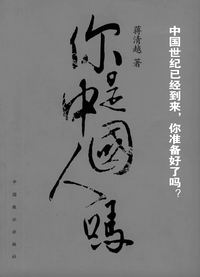 中国世纪已经到来，你准备好了吗？
蒋清越 著
你是
中國
人嗎